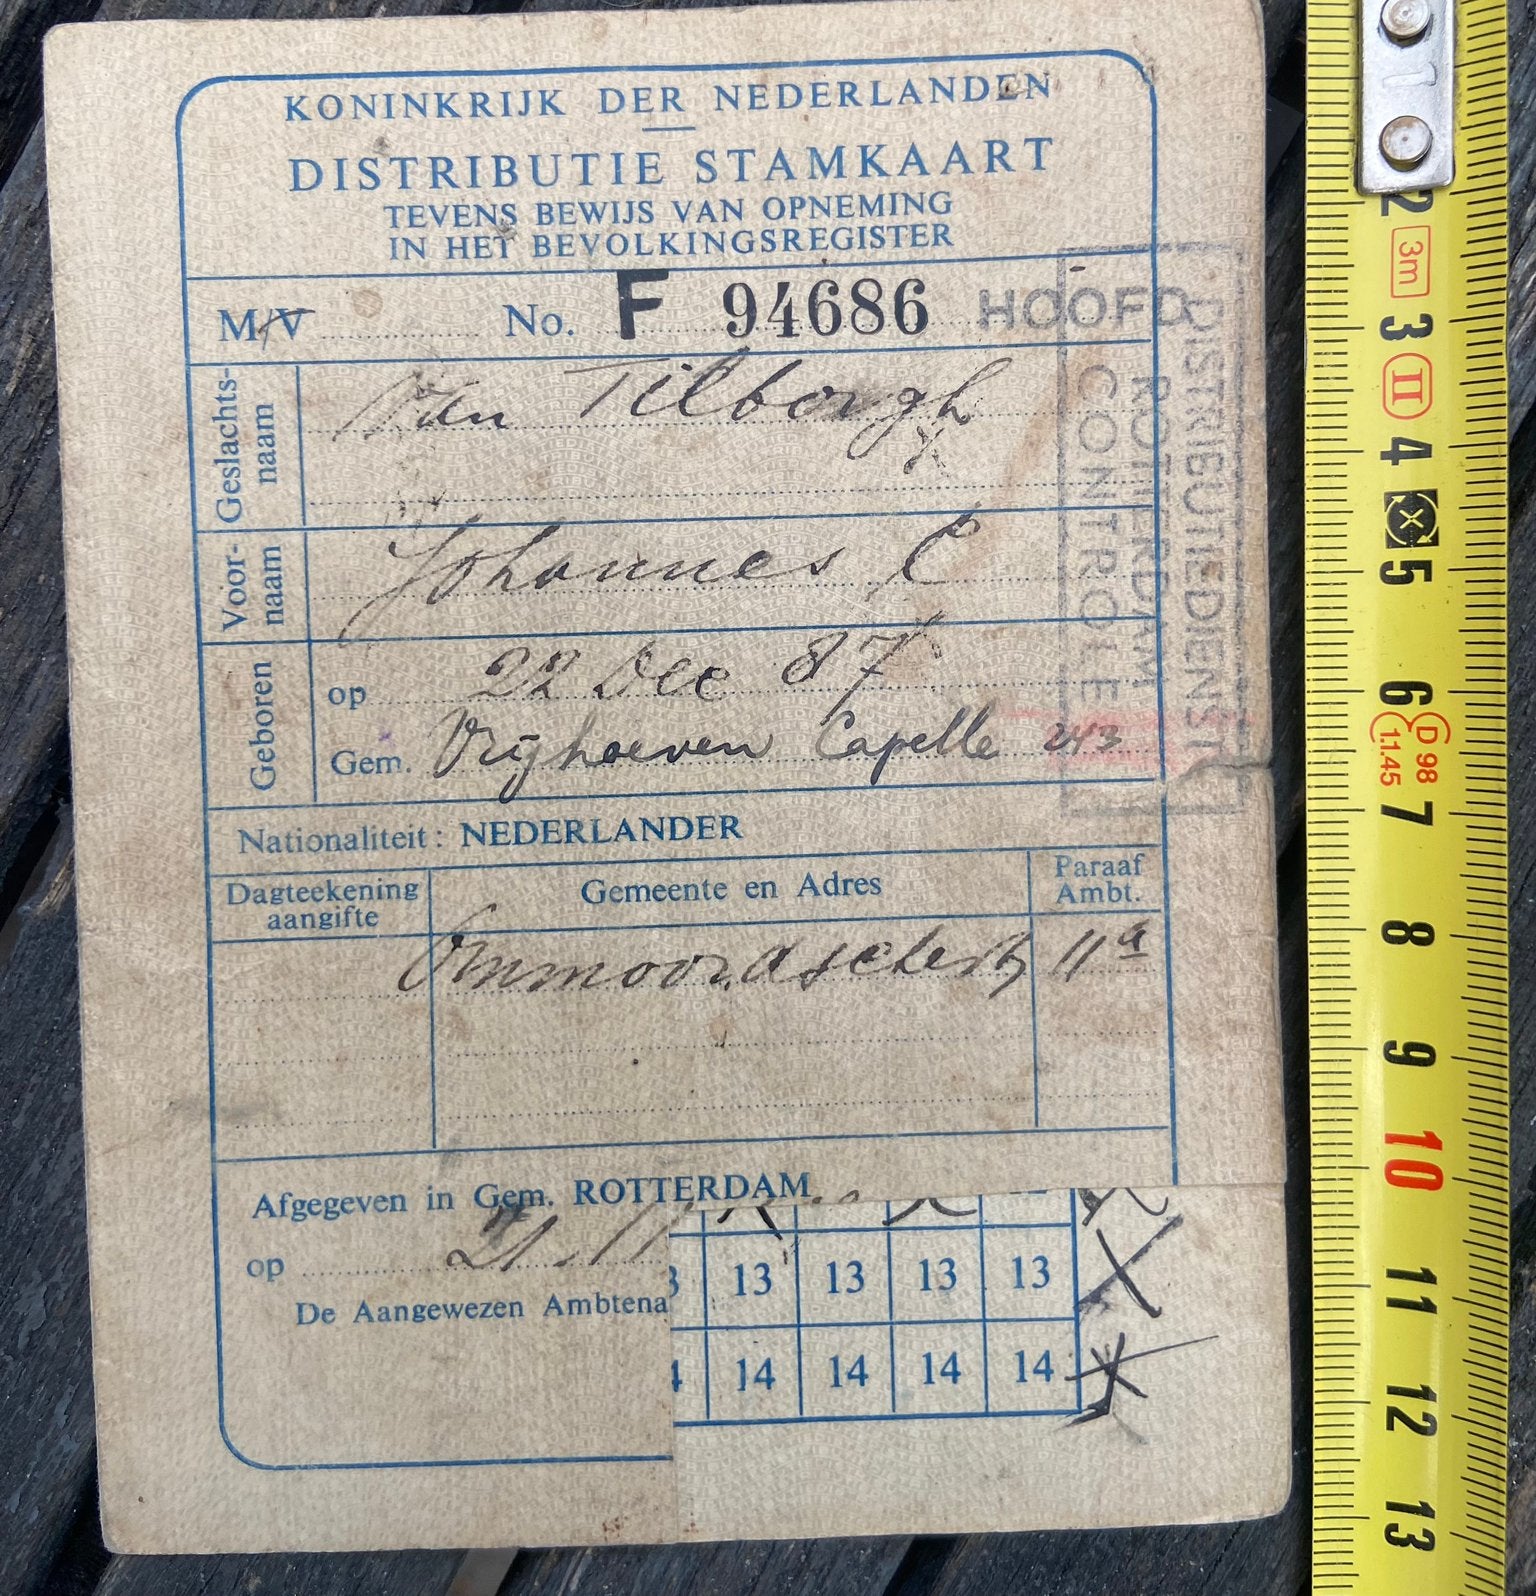 KONINKRIJK DER NEDERLANDEN
DISTRIBUTIE STAMKAART
TEVENS BEWIJS VAN OPNEMING
IN HET BEVOLKINGSREGISTER
M/V No. F 94686 HOOFD
DISTRIBUTIEDIENST
ROTTERDAM
CONTROLE
Geslachts-
naam
Van Tilborgh
Voor-
naam
Johannes C
Geboren
op 22 Dec 87
Gem. Vrijhoeven Capelle 243
Nationaliteit: NEDERLANDER
Dagteekening
aangifte
Gemeente en Adres
Paraaf
Ambt.
11a
Afgegeven in Gem. ROTTERDAM
op
De Aangewezen Ambtena
13 13 13 13
14 14 14 14
2
3m
3
II
4
5
6
D98
1.1.45
7
8
9
10
11
12
13